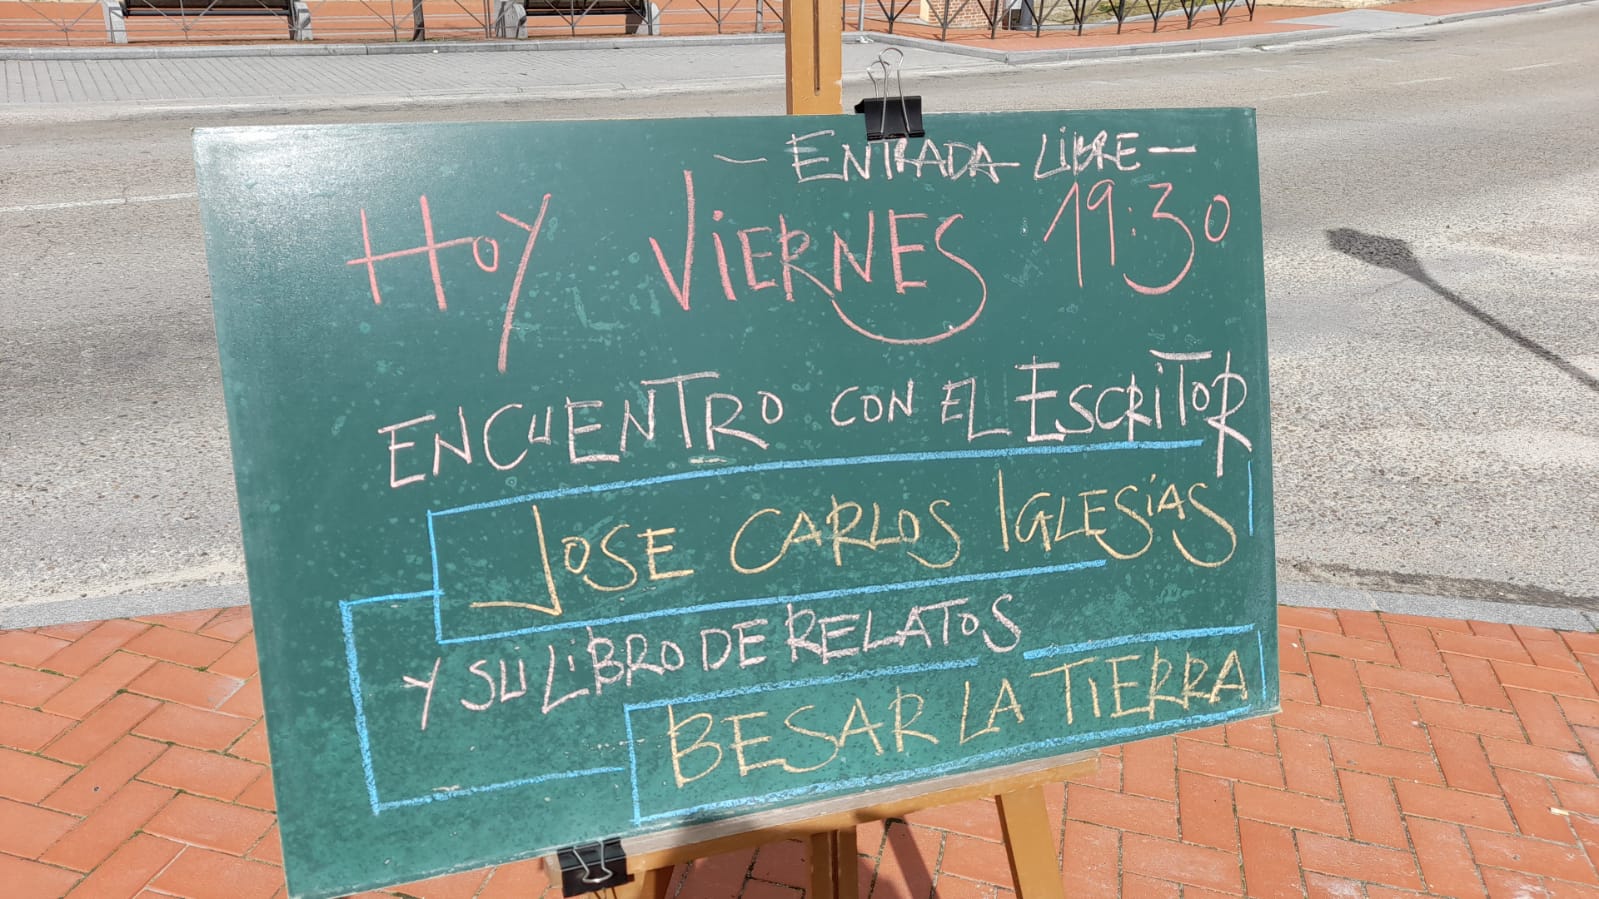 — ENTRADA LIBRE —
HOY VIERNES 19:30
ENCUENTRO CON EL ESCRITOR
JOSE CARLOS IGLESIAS
Y SU LIBRO DE RELATOS
BESAR LA TIERRA